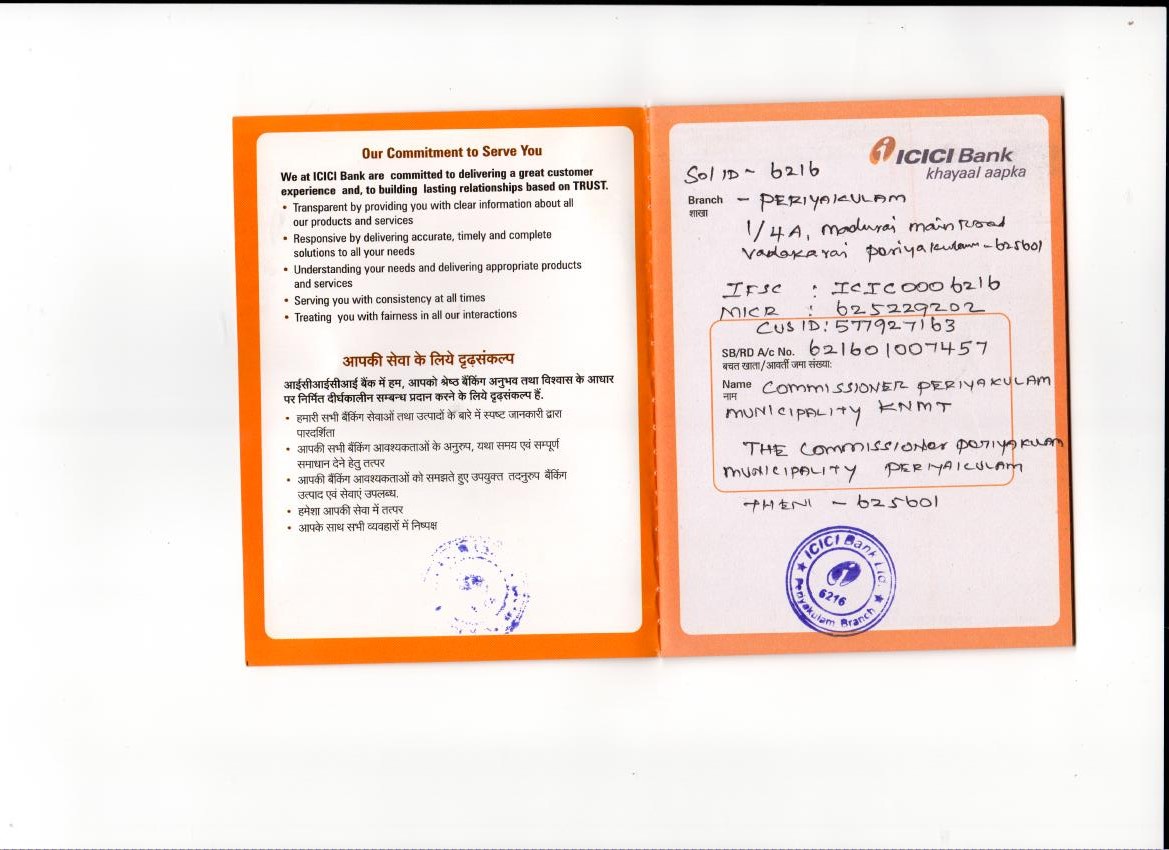 Our Commitment to Serve You
We at ICICI Bank are committed to delivering a great customer
experience and, to building lasting relationships based on TRUST.
• Transparent by providing you with clear information about all
our products and services
• Responsive by delivering accurate, timely and complete
solutions to all your needs
• Understanding your needs and delivering appropriate products
and services
• Serving you with consistency at all times
• Treating you with fairness in all our interactions
आपकी सेवा के लिये दृढ़संकल्प
आईसीआईसीआई बैंक में हम, आपको श्रेष्ठ बैंकिंग अनुभव तथा विश्वास के आधार
पर निर्मित दीर्घकालीन सम्बन्ध प्रदान करने के लिये दृढ़संकल्प हैं.
• हमारी सभी बैंकिंग सेवाओं तथा उत्पादों के बारे में स्पष्ट जानकारी द्वारा
पारदर्शिता
• आपकी सभी बैंकिंग आवश्यकताओं के अनुरुप, यथा समय एवं सम्पूर्ण
समाधान देने हेतु तत्पर
• आपकी बैंकिंग आवश्यकताओं को समझते हुए उपयुक्त तदनुरुप बैंकिंग
उत्पाद एवं सेवाएं उपलब्ध.
• हमेशा आपकी सेवा में तत्पर
• आपके साथ सभी व्यवहारों में निष्पक्ष
ICICI Bank
khayaal aapka
Sol ID - 6216
Branch - PERIYAKULAM
शाखा
1/4A, Madurai main Road
Vadakarai Periyakulam - 625601
IFSC : ICIC0006216
MICR : 625229202
CUS ID: 577927163
SB/RD A/c No. 621601007457
बचत खाता/आवर्ती जमा संख्या:
Name COMMISSIONER PERIYAKULAM
नाम
MUNICIPALITY KNMT
THE COMMISSIONER PERIYAKULAM
MUNICIPALITY PERIYAKULAM
THENI - 625601
ICICI Bank Ltd.
6216
Periyakulam Branch